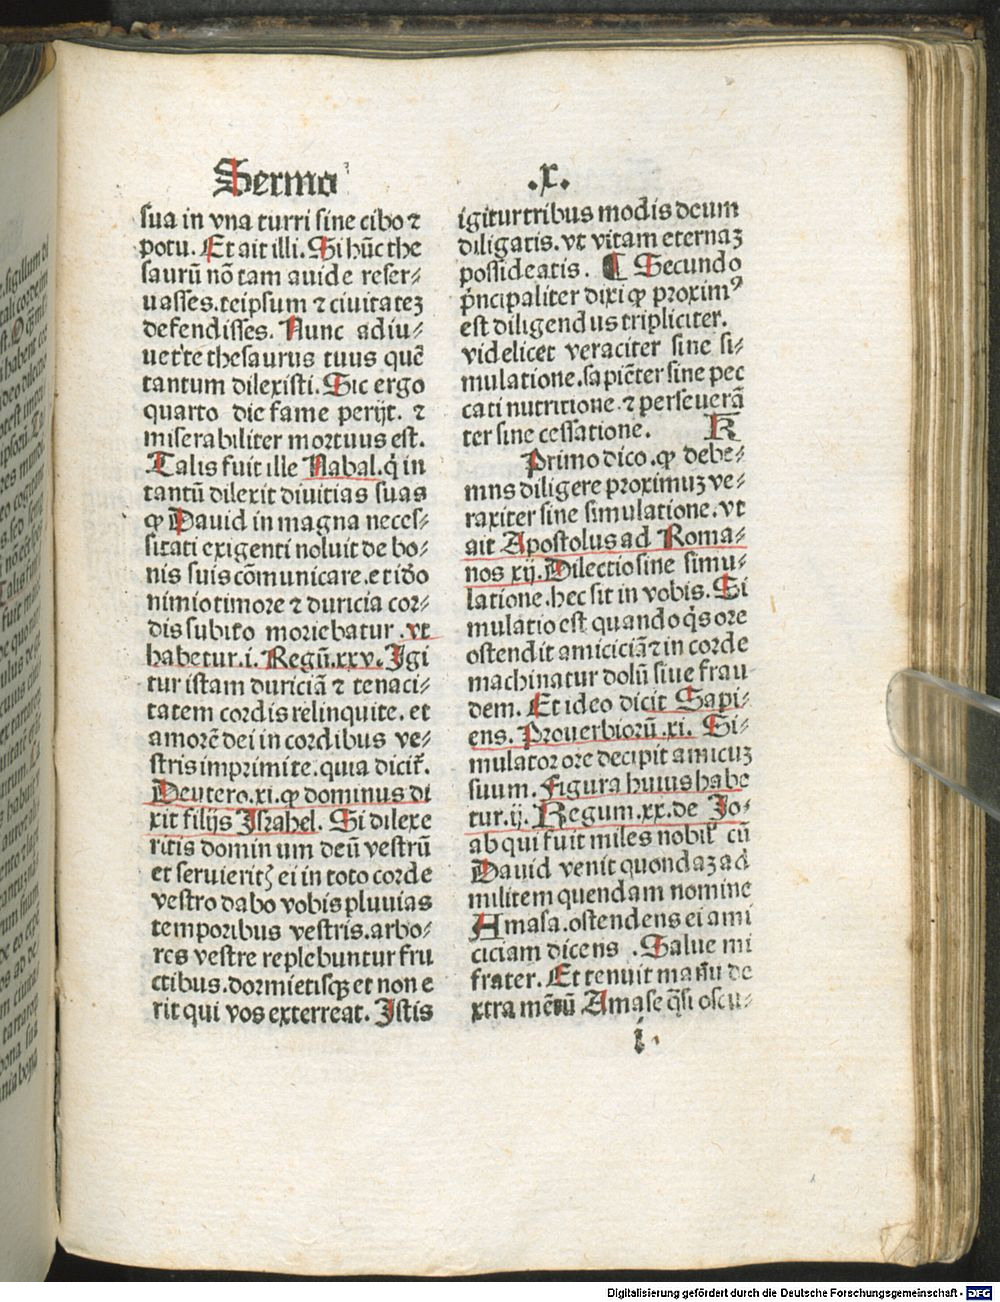 Sermo .x.
sua in vna turri sine cibo ⁊
potu. Et ait illi. Si hūc the
saurū nō tam auide reser⸗
uasses. teipsum ⁊ ciuitatez
defendisses. Nunc adiu⸗
uet te thesaurus tuus quē
tantum dilexisti. Sic ergo
quarto die fame perijt. ⁊
miserabiliter mortuus est.
Talis fuit ille Nabal. q̇ in
tantū dilexit diuitias suas
ꝙ Dauid in magna neces⸗
sitati exigenti noluit de bo⸗
nis suis cōmunicare. et iđo
nimio timore ⁊ duricia cor⸗
dis subito moriebatur .vt
habetur .i. Regū .xxv. Igi
tur istam duriciā ⁊ tenaci⸗
tatem cordis relinquite. et
amorē dei in cordibus ve⸗
stris imprimite. quia dicit̄.
Deutero. xi. ꝙ dominus di
xit filijs Israhel. Si dilexe
ritis dominum deū vestrū
et seruieritꝭ ei in toto corde
vestro dabo vobis pluuias
temporibus vestris. arbo⸗
res vestre replebuntur fru
ctibus. dormietisqꝫ et non e
rit qui vos exterreat. Istis
igitur tribus modis deum
diligatis. vt vitam eternaz
possideatis. ¶ Secundo
p̄ncipaliter dixi ꝙ proximꝰ
est diligendus tripliciter.
videlicet veraciter sine si⸗
mulatione. sapiēter sine pec
cati nutritione. ⁊ perseuerā
ter sine cessatione. R
Primo dico. ꝙ debe⸗
mns diligere proximuz ve⸗
raxiter sine simulatione. vt
ait Apostolus ad Roma⸗
nos xij. Dilectio sine simu⸗
latione. hec sit in vobis. Si
mulatio est quando q̇s ore
ostendit amiciciā ⁊ in corde
machinatur dolū siue frau
dem. Et ideo dicit Sapi⸗
ens. Prouerbiorū .xi. Si⸗
mulator ore decipit amicuz
suum. Figura huius habe
tur .ij. Regum .xx. de Jo⸗
ab qui fuit miles nobił cū
Dauid venit quondaz ad
militem quendam nomine
Amasa. ostendens ei ami
ciciam dicens . Salue mi
frater. Et tenuit manū de
xtra mētū Amase q̄si oscu⸗
i.
Digitalisierung gefördert durch die Deutsche Forschungsgemeinschaft - DFG